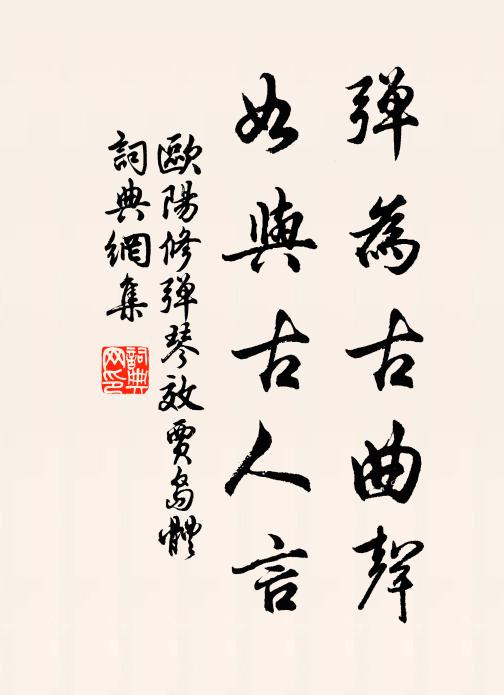 彈為古曲聲
如與古人言
歐陽修彈琴效賈島體
詞典網集
詞典網印